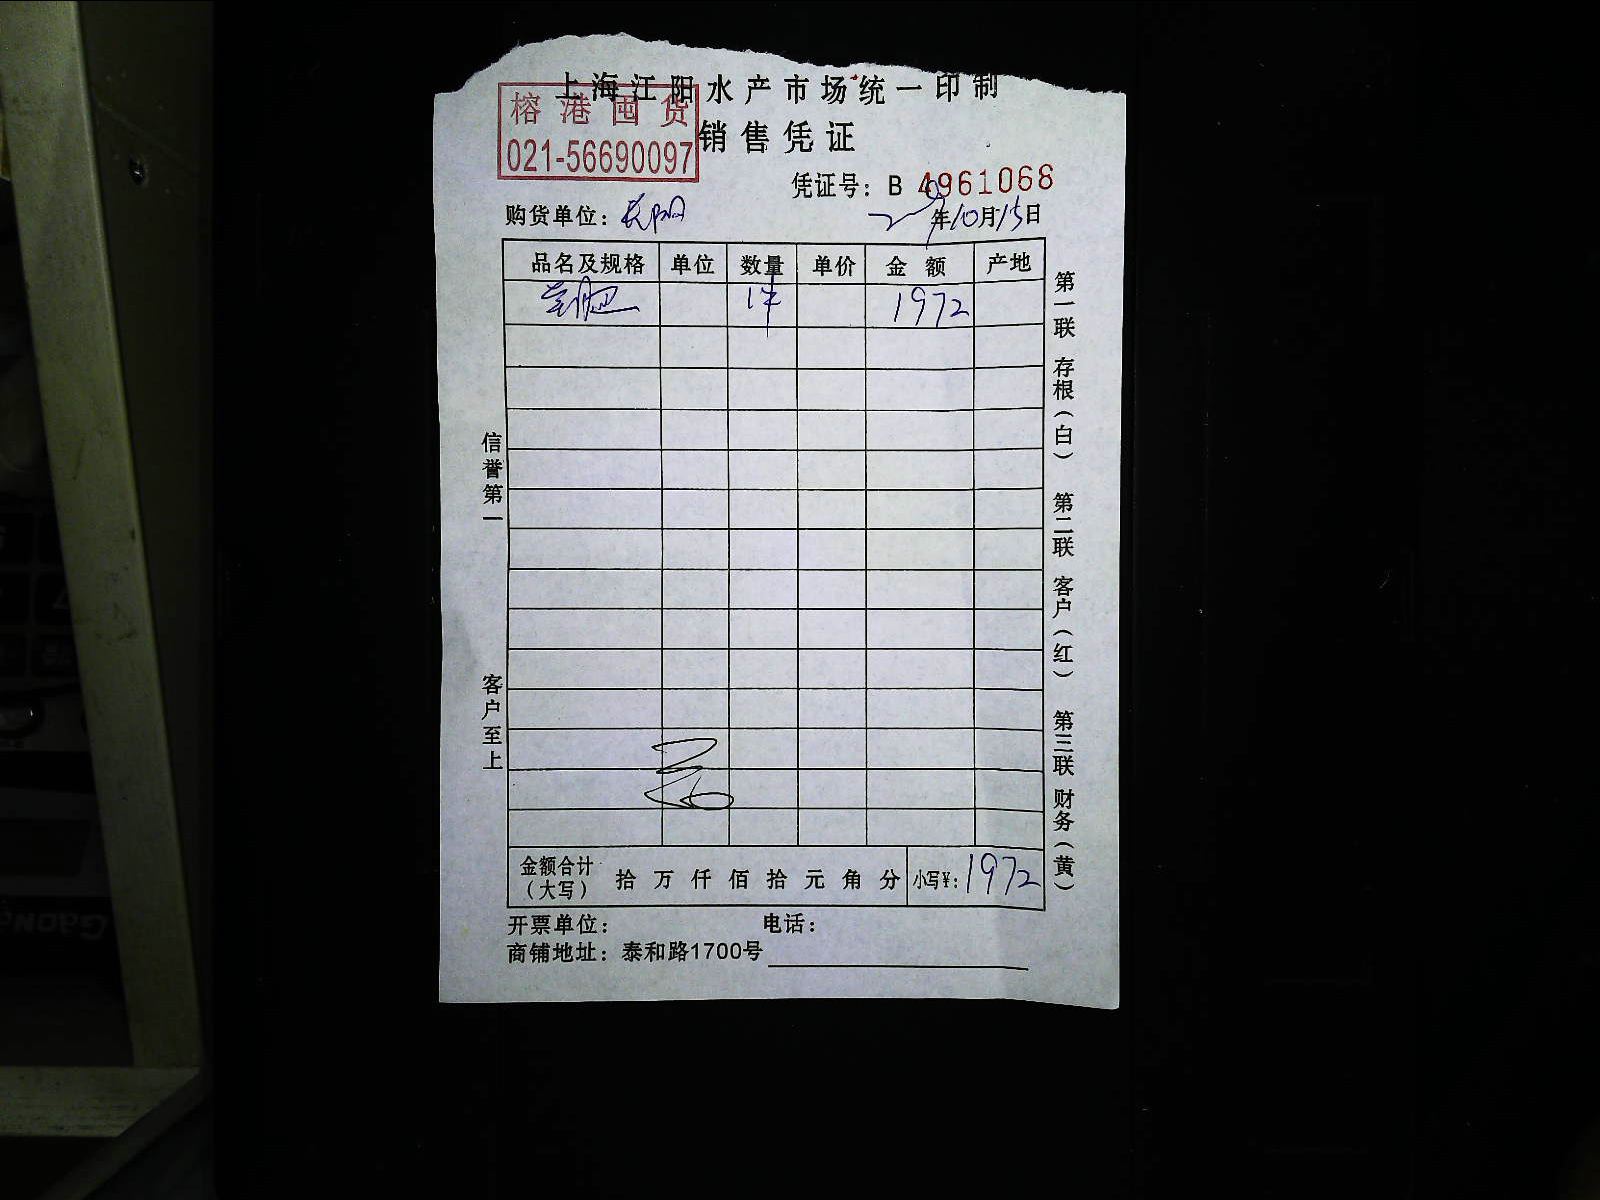 上海江阳水产市场统一印制
榕港囤货
021-56690097
销售凭证
凭证号：B 4961068
购货单位：长阳
年10月15日
品名及规格 单位 数量 单价 金额 产地
1件 1972
信誉第一
客户至上
第一联 存根（白） 第二联 客户（红） 第三联 财务（黄）
金额合计（大写） 拾万仟佰拾元角分 小写¥：1972
开票单位： 电话：
商铺地址：泰和路1700号